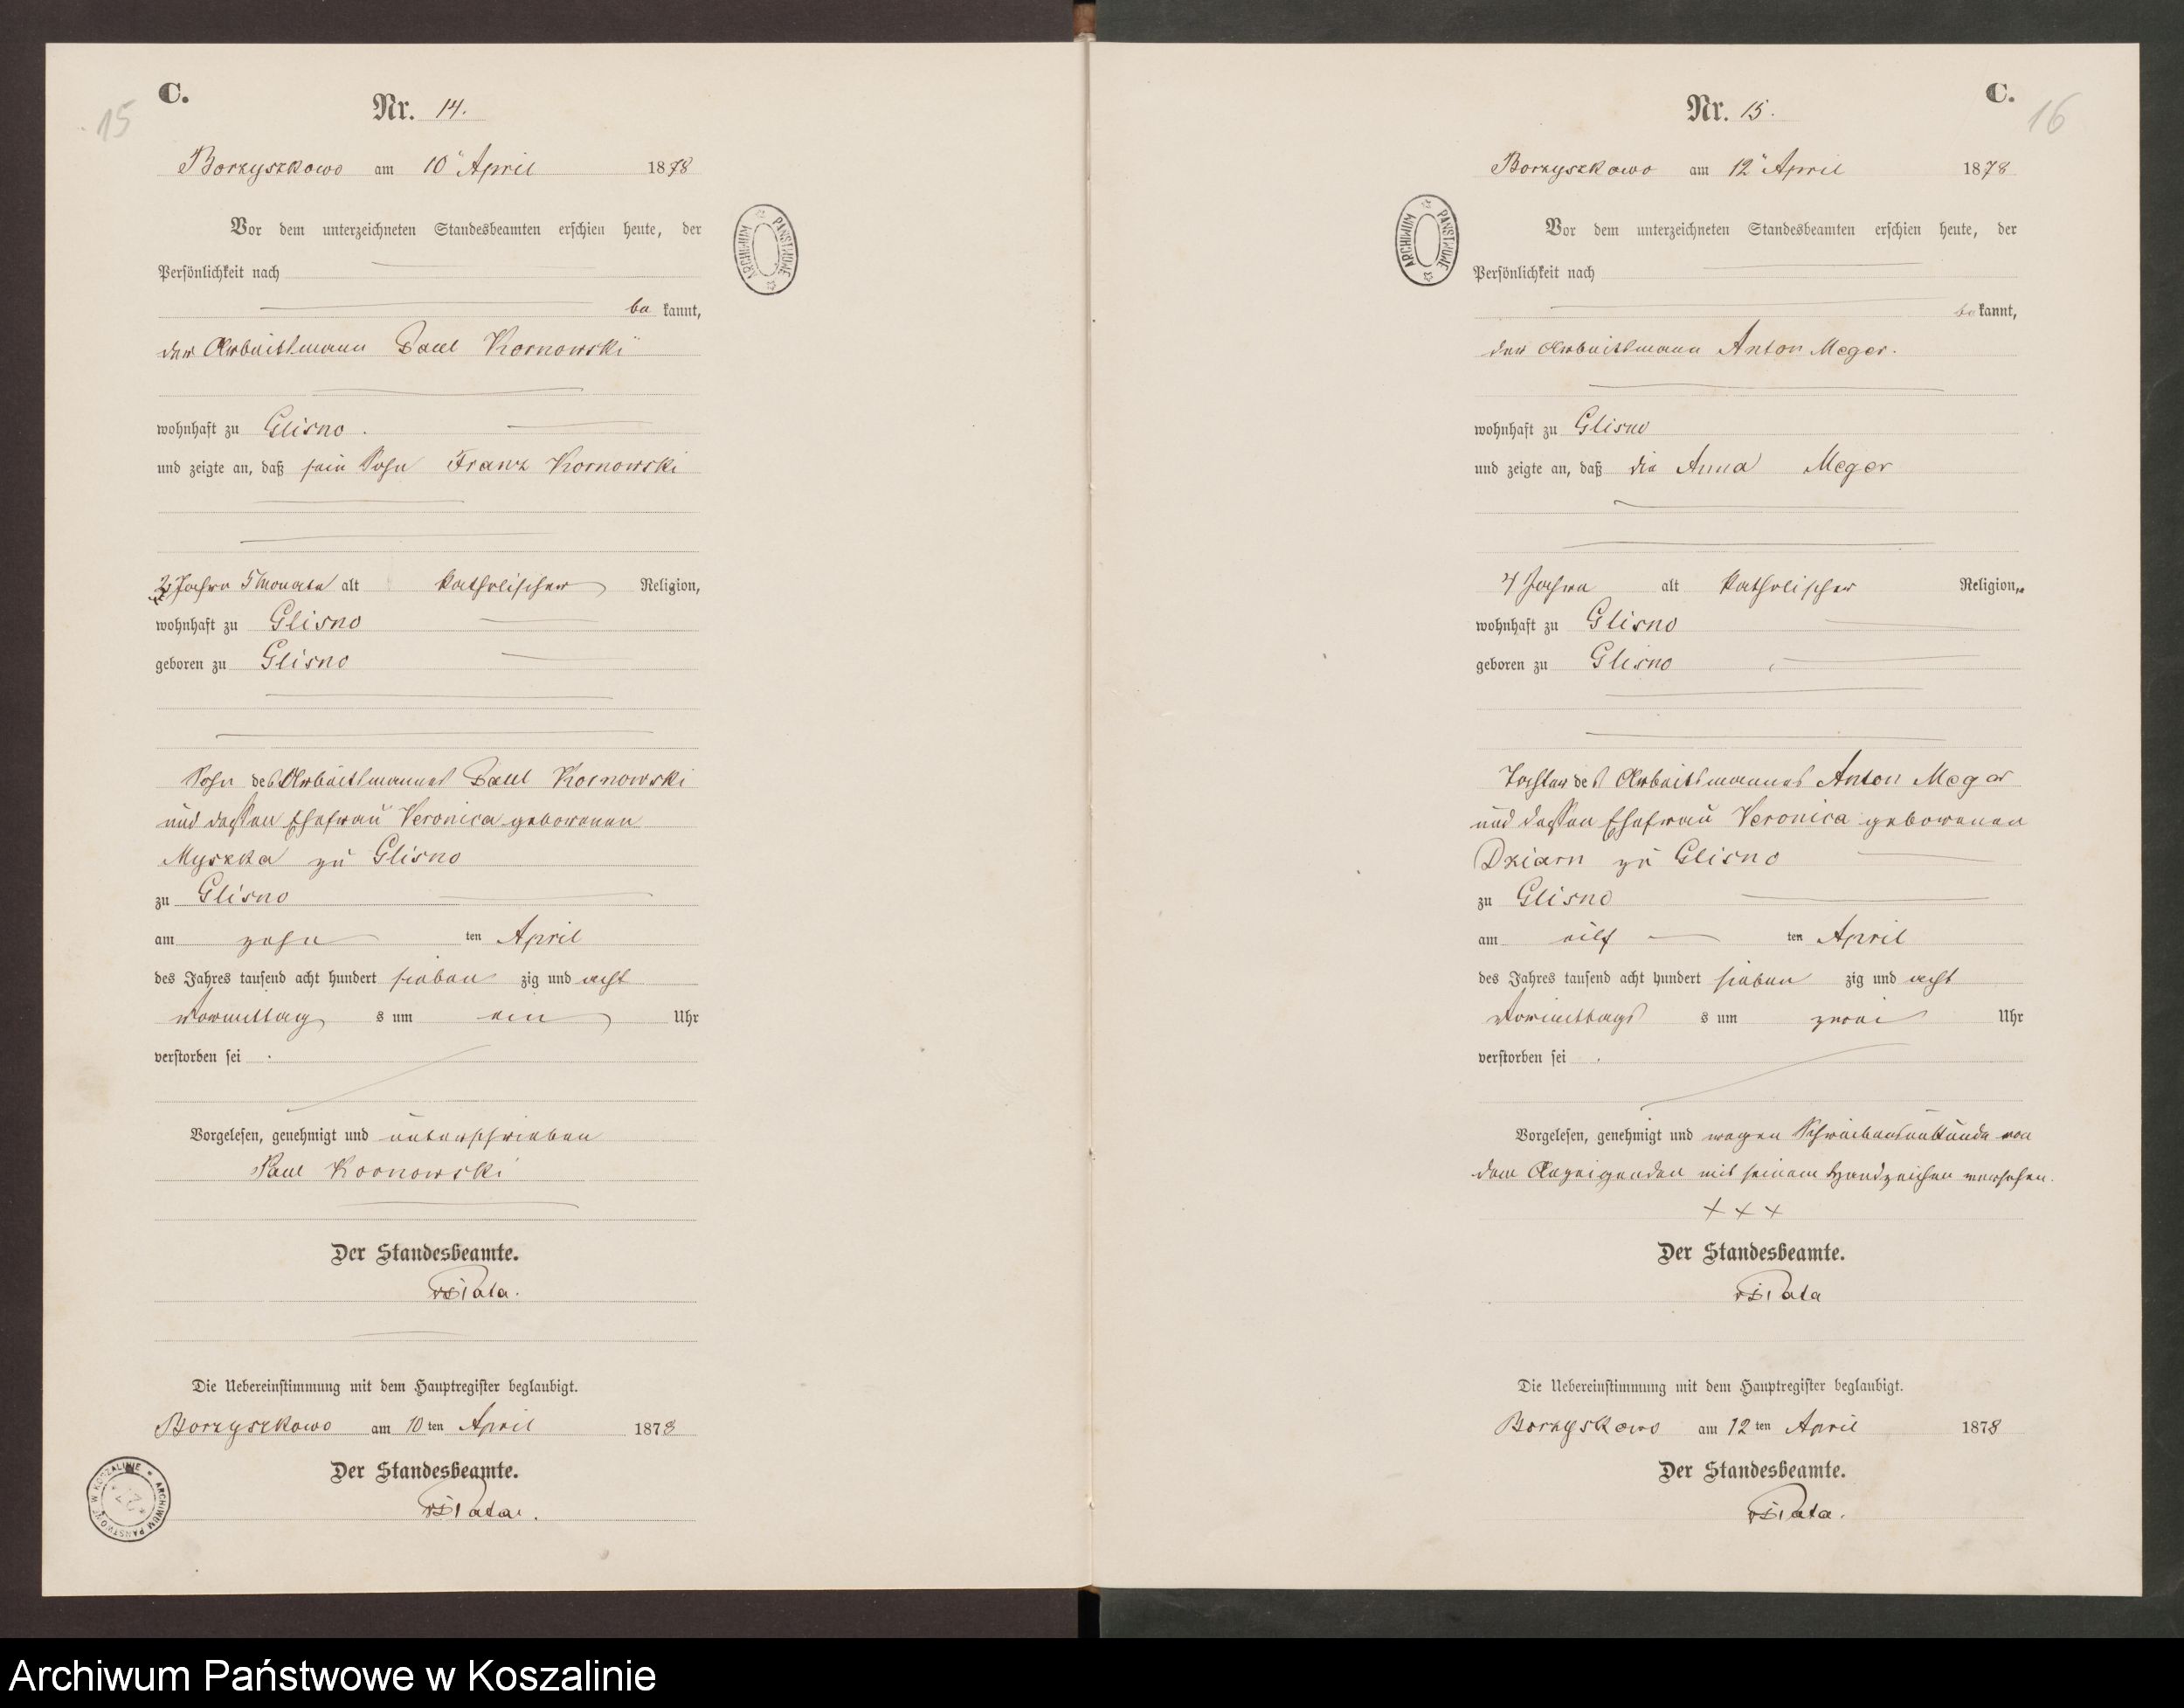 15
C.
Nr. 14.
Borzyszkowo am 10" April 1878
Vor dem unterzeichneten Standesbeamten erschien heute, der
Persönlichkeit nach
be kannt,
der Arbeitsmann Paul Kornowski
wohnhaft zu Glisno.
und zeigte an, daß sein Sohn Franz Kornowski
2 Jahre 5 Monate alt katholischer Religion,
wohnhaft zu Glisno
geboren zu Glisno
Sohn des Arbeitsmannes Paul Kornowski
und dessen Ehefrau Veronica geborenen
Myszka zu Glisno
zu Glisno
am zehn ten April
des Jahres tausend acht hundert sieben zig und acht
Vormittag s um ein Uhr
verstorben sei.
Vorgelesen, genehmigt und unterschrieben
Paul Kornowski
Der Standesbeamte.
Die Uebereinstimmung mit dem Hauptregister beglaubigt.
Borzyszkowo am 10 ten April 1878
Der Standesbeamte.
ARCHIWUM PAŃSTWOWE
ARCHIWUM PAŃSTWOWE W KOSZALINIE
C.
16
Nr. 15.
Borzyszkowo am 12" April 1878
Vor dem unterzeichneten Standesbeamten erschien heute, der
Persönlichkeit nach
be kannt,
der Arbeitsmann Anton Meger.
wohnhaft zu Glisno
und zeigte an, daß die Anna Meger
4 Jahre alt katholischer Religion,
wohnhaft zu Glisno
geboren zu Glisno
Tochter des Arbeitsmannes Anton Meger
und dessen Ehefrau Veronica geborenen
Dziarn zu Glisno
zu Glisno
am eilf ten April
des Jahres tausend acht hundert sieben zig und acht
Vormittags s um zwei Uhr
verstorben sei.
Vorgelesen, genehmigt und wegen Schreibensunkunde von
dem Anzeigenden mit seinem Handzeichen versehen.
+ + +
Der Standesbeamte.
Die Uebereinstimmung mit dem Hauptregister beglaubigt.
Borzyskowo am 12 ten April 1878
Der Standesbeamte.
ARCHIWUM PAŃSTWOWE
Archiwum Państwowe w Koszalinie